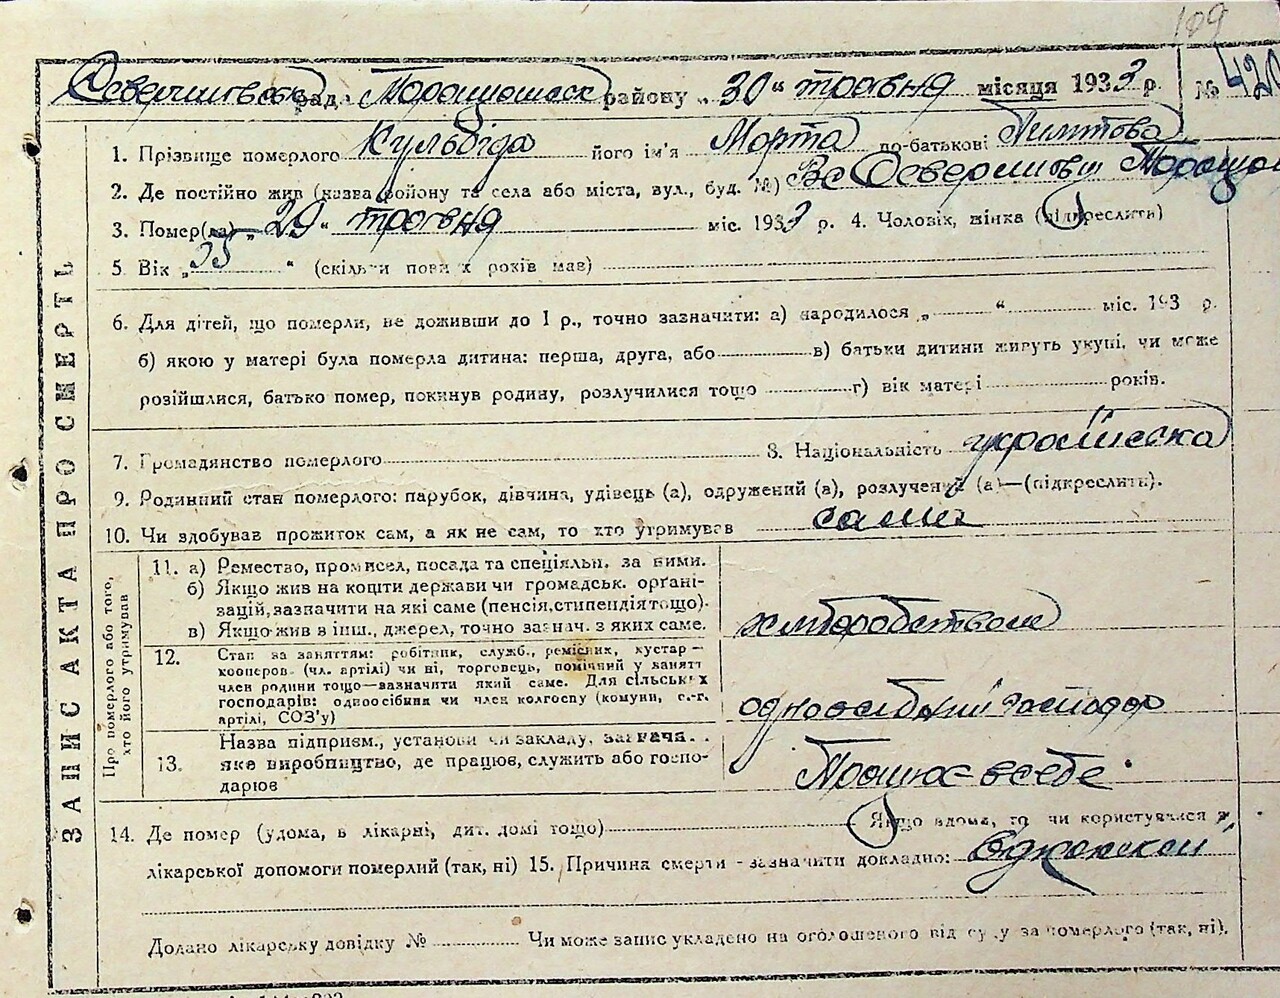 109
рад Тарашанськ району „30“ травня місяця 1933 р. № 420
1. Прізвище померлого Кульбіда його ім'я Марта по-батькові
2. Де постійно жив (назва району та села або міста, вул., буд. №)
3. Помер(ла) „29“ травня міс. 1933 р. 4. Чоловік, жінка (підкреслити)
5. Вік „35“ (скільки повних років мав)
6. Для дітей, що померли, не доживши до 1 р., точно зазначити: а) народилося „ “ міс. 193 р.
б) якою у матері була померла дитина: перша, друга, або в) батьки дитини живуть укупі, чи може
розійшлися, батько помер, покинув родину, розлучилися тощо г) вік матері років.
7. Громадянство померлого 8. Національність українка
9. Родинний стан померлого: парубок, дівчина, удівець (а), одружений (а), розлучений (а)—(підкреслить).
10. Чи здобував прожиток сам, а як не сам, то хто утримував сама
ЗАПИС АКТА ПРО СМЕРТЬ
Про померлого або того, хто його утримував
11. а) Ремество, промисел, посада та спеціяльн. за ними.
б) Якщо жив на кошти держави чи громадськ. органі-
зацій, зазначити на які саме (пенсія, стипендія тощо).
в) Якщо жив в інш., джерел, точно зазнач. з яких саме. хліборобством
12. Стан за заняттям: робітник, служб., ремісник, кустар—
кооперов. (чл. артілі) чи ні, торговець, помічний у занятт
член родини тощо—зазначити який саме. Для сільських
господарів: одноосібник чи член колгоспу (комуни, с.-г.
артілі, СОЗ'у) одноосібний господар
13. Назва підприєм., установи чи закладу, зазнача.
яке виробництво, де працює, служить або госпо-
дарює Працює в себе
14. Де помер (удома, в лікарні, дит. домі тощо) Якщо вдома, то чи користувався з
лікарської допомоги померлий (так, ні) 15. Причина смерти - зазначити докладно:
Додано лікарську довідку № Чи може запис укладено на оголошеного від суду за померлого (так, ні).